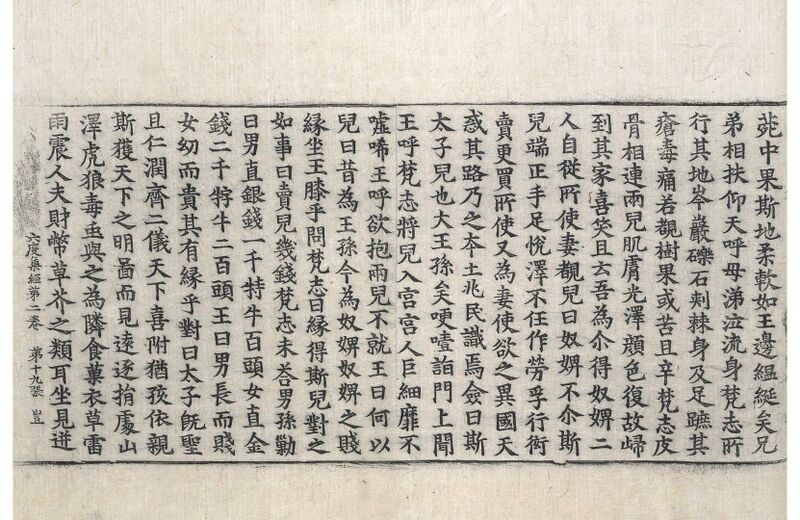 蓏中果斯地柔軟如王邊縕綖矣兄
弟相扶仰天呼母涕泣流身梵志所
行其地岑巖礫石刺棘身及足蹠其
瘡毒痛若覩樹果或苦且辛梵志皮
骨相連兩兒肌膚光澤顏色復故歸
到其家喜笑且云吾為尒得奴婢二
人自從所使妻覩兒曰奴婢不尒斯
兒端正手足悅澤不任作勞孚行衒
賣更買所使又為妻使欲之異國天
惑其路乃之夲土兆民識焉僉曰斯
太子兒也大王孫矣哽噎詣門上聞
王呼梵志將兒入宮宮人巨細靡不
噓唏王呼欲抱兩兒不就王曰何以
兒曰昔為王孫今為奴婢奴婢之賤
緣坐王膝乎問梵志曰緣得斯兒對之
如事曰賣兒幾錢梵志未荅男孫勦
曰男直銀錢一千特牛百頭女直金
錢二千牸牛二百頭王曰男長而賤
女幼而貴其有緣乎對曰太子旣聖
且仁潤齊二儀天下喜附猶孩依親
斯獲天下之明啚而見遠逐捐處山
澤虎狼毒䖝與之為隣食菓衣草雷
六度集經第二卷 第十九張 豈
雨震人夫財幣草芥之類耳坐見迸